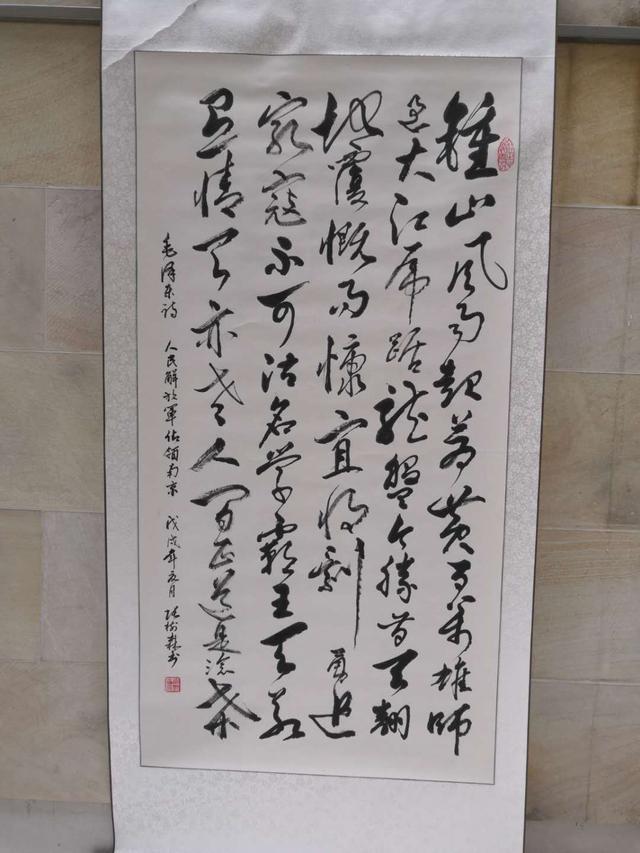 鍾山风雨起苍黄百万雄师
过大江虎踞龙盘今胜昔天翻
地覆慨而慷宜将剩勇追
穷寇不可沽名学霸王天若
有情天亦老人间正道是沧桑
毛泽东诗 人民解放军佔领南京 戊戌年五月 张树森书